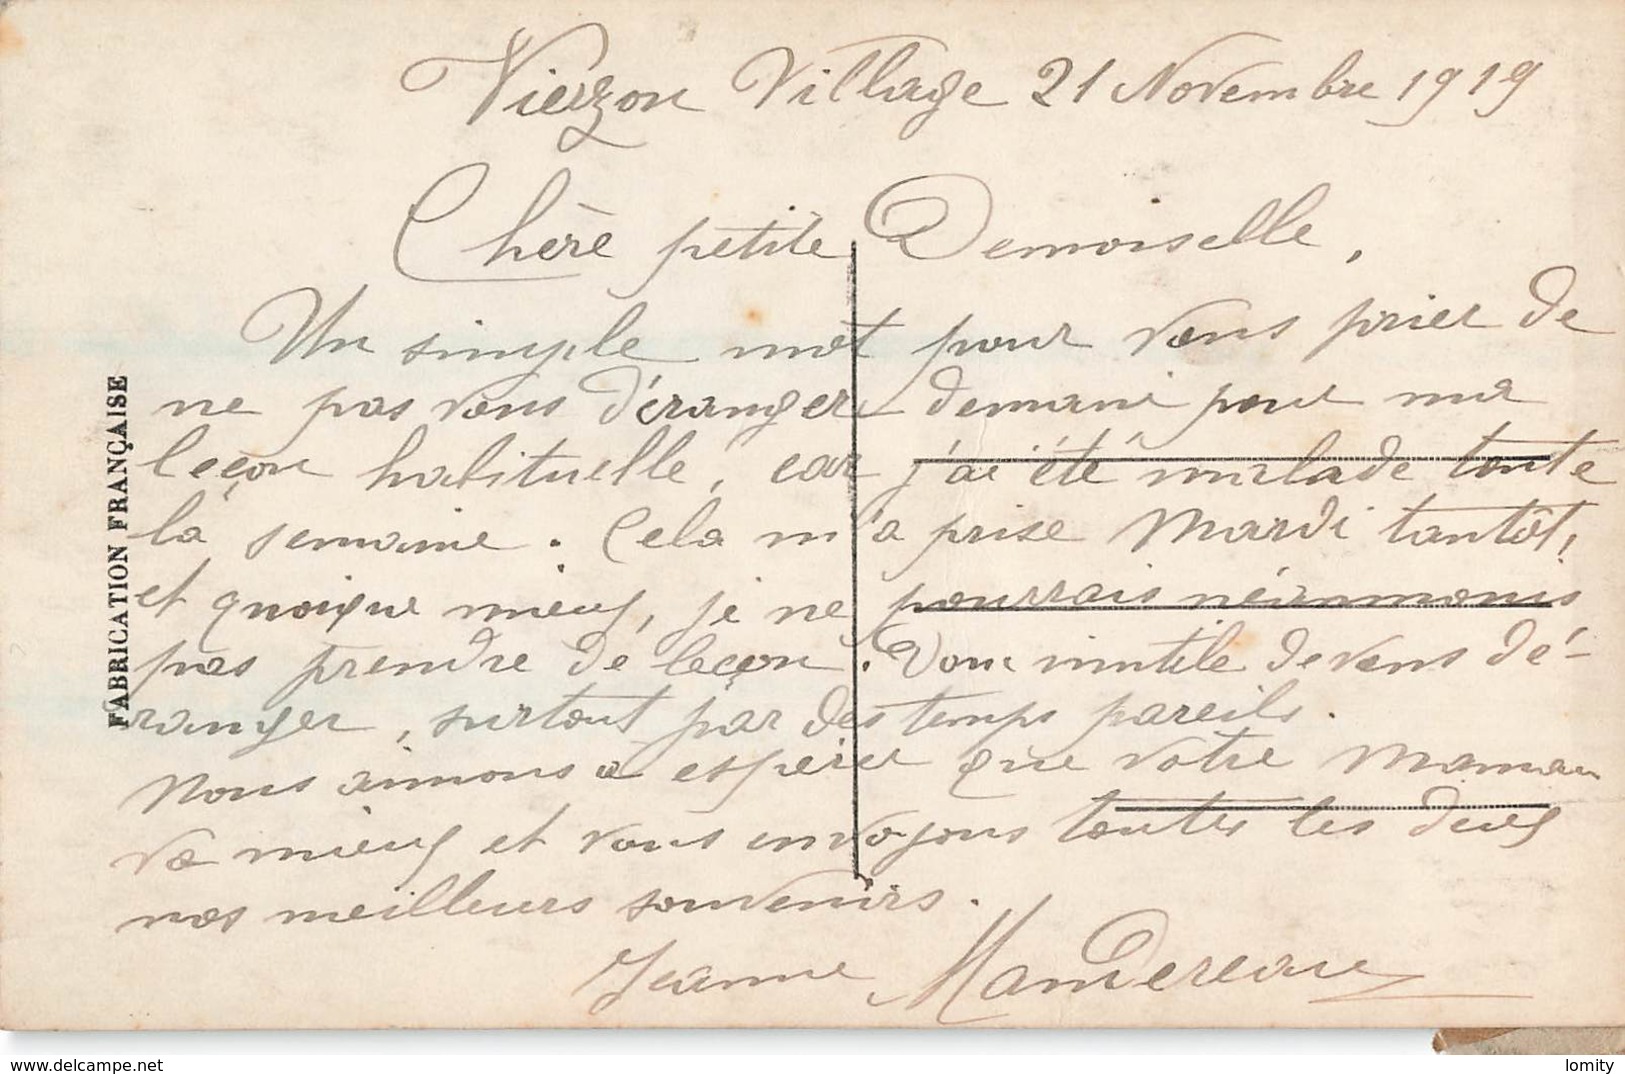 Vierzon Village 21 Novembre 1919
Chère petite Demoiselle,
Un simple mot pour vous prier de
ne pas vous déranger demain pour ma
leçon habituelle, car j'ai été malade toute
la semaine. Cela m'a prise Mardi tantôt,
et quoique mieux, je ne pourrais néanmoins
pas prendre de leçon. Donc inutile de vous dé-
ranger, surtout par des temps pareils.
Nous aimons à espérer que votre Maman
va mieux et vous envoyons toutes les deux
nos meilleurs souvenirs.
Jeanne Mandereau
FABRICATION FRANÇAISE
lomity